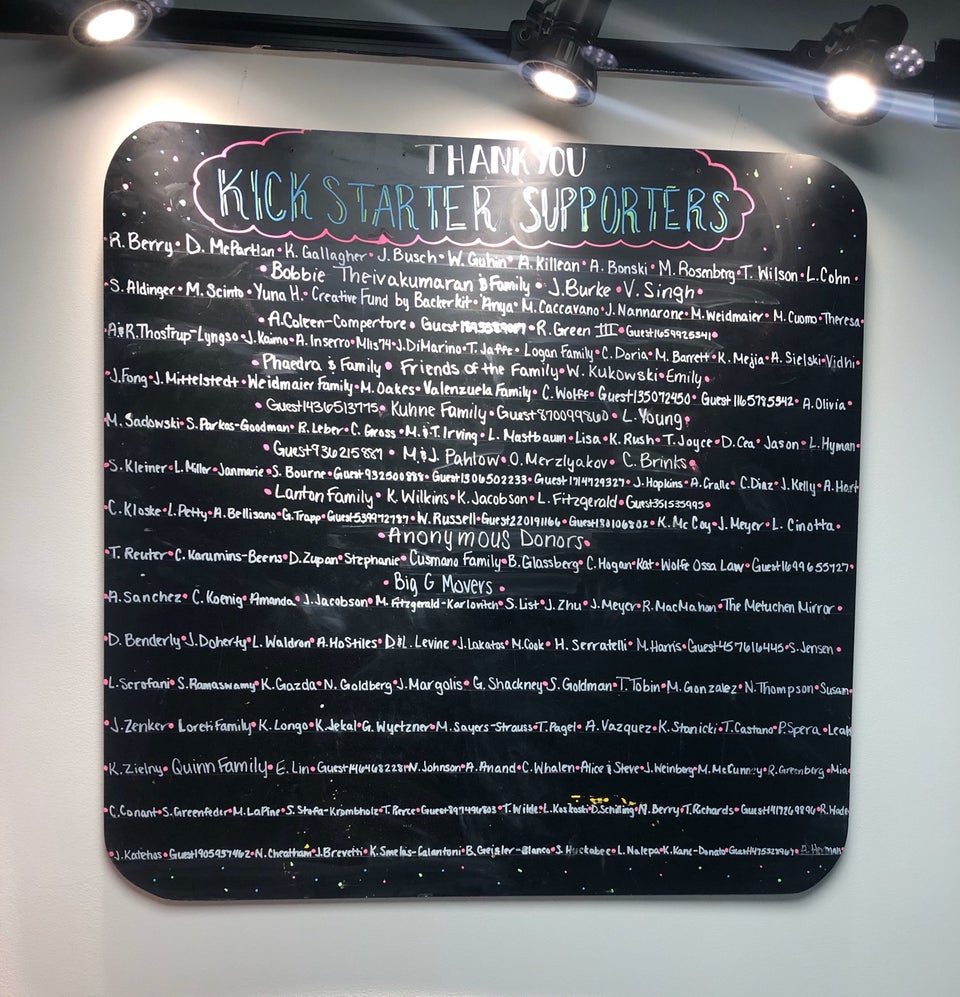 THANK YOU
KICKSTARTER SUPPORTERS
R. Berry • D. McPartlan • K. Gallagher • J. Busch • W. Guhin • A. Killean • A. Bonski • M. Rosenberg • T. Wilson • L. Cohn •
• Bobbie Theivakumaran & Family • J. Burke • V. Singh •
S. Aldinger • M. Scinto • Yuna H. • Creative Fund by Backerkit • Anya • M. Caccavano • J. Nannarone • M. Weidmaier • M. Cuomo • Theresa •
• A. Coleen-Compertore • Guest • R. Green III • Guest1659925341 •
A & R. Thostrup-Lyngso • J. Kaimo • A. Inserro • Mlis74 • J. DiMarino • T. Jaffe • Logan Family • C. Doria • M. Barrett • K. Mejia • A. Sielski • Vidhi •
• Phaedra & Family • Friends of the Family • W. Kukowski • Emily •
J. Fong • J. Mittelstedt • Weidmaier Family • M. Oakes • Valenzuela Family • C. Wolff • Guest135072450 • Guest1165785342 • A. Olivia •
• Guest1436513775 • Kuhne Family • Guest870099860 • L. Young •
M. Sadowski • S. Parkas-Goodman • R. Leber • C. Gross • M. & T. Irving • L. Mastbaum • Lisa • K. Rush • T. Joyce • D. Cea • Jason • L. Hyman •
• Guest936215887 • M & J. Pahlow • O. Merzlyakov • C. Brinks •
S. Kleiner • L. Miller • Janmarie • S. Bourne • Guest932500889 • Guest1306502233 • Guest1714729327 • J. Hopkins • A. Gralle • C. Diaz • J. Kelly • A. Hart
• Lanton Family • K. Wilkins • K. Jacobson • L. Fitzgerald • Guest351535995 •
C. Kloske • L. Petty • A. Bellisano • G. Trapp • Guest539972787 • W. Russell • Guest220191166 • Guest130106802 • K. McCoy • J. Meyer • L. Cinotta •
• Anonymous Donors •
T. Reuter • C. Karumins-Beens • D. Zupan • Stephanie • Cusmano Family • B. Glassberg • C. Hogan • Kat • Wolfe Ossa Law • Guest1699655727 •
• Big G Movers •
A. Sanchez • C. Koenig • Amanda • J. Jacobson • M. Fitzgerald-Karlovitch • S. List • J. Zhu • J. Meyer • R. MacMahon • The Metuchen Mirror •
D. Benderly • J. Doherty • L. Waldron • A. HoStiles • D & L. Levine • J. Lakatos • M. Cook • H. Serratelli • M. Harris • Guest457616445 • S. Jensen •
L. Scrofani • S. Ramaswamy • K. Gazda • N. Goldberg • J. Margolis • G. Shackney • S. Goldman • T. Tobin • M. Gonzalez • N. Thompson • Susan •
J. Zenker • Loreti Family • K. Longo • K. Jekal • G. Wyetzner • M. Sayers-Strauss • T. Pagel • A. Vazquez • K. Stanicki • T. Castano • P. Spera • Leah
K. Zielny • Quinn Family • E. Lin • Guest1464682281 • N. Johnson • A. Anand • C. Whalen • Alice & Steve • J. Weinberg • M. McCunney • R. Greenberg • Mia •
C. Conant • S. Greenfeder • M. LaPine • S. Stofa-Krombholz • T. Pierce • Guest897496803 • T. Wilde • L. Koszkoski • D. Schilling • M. Berry • T. Richards • Guest417269896 • R.
J. Katehos • Guest1905957462 • N. Cheatham • J. Brevetti • K. Smelas-Calantoni • B. Geisler-Blanco • S. Huckabee • L. Nalepa • K. Kane-Donato • Guest1475327967 •